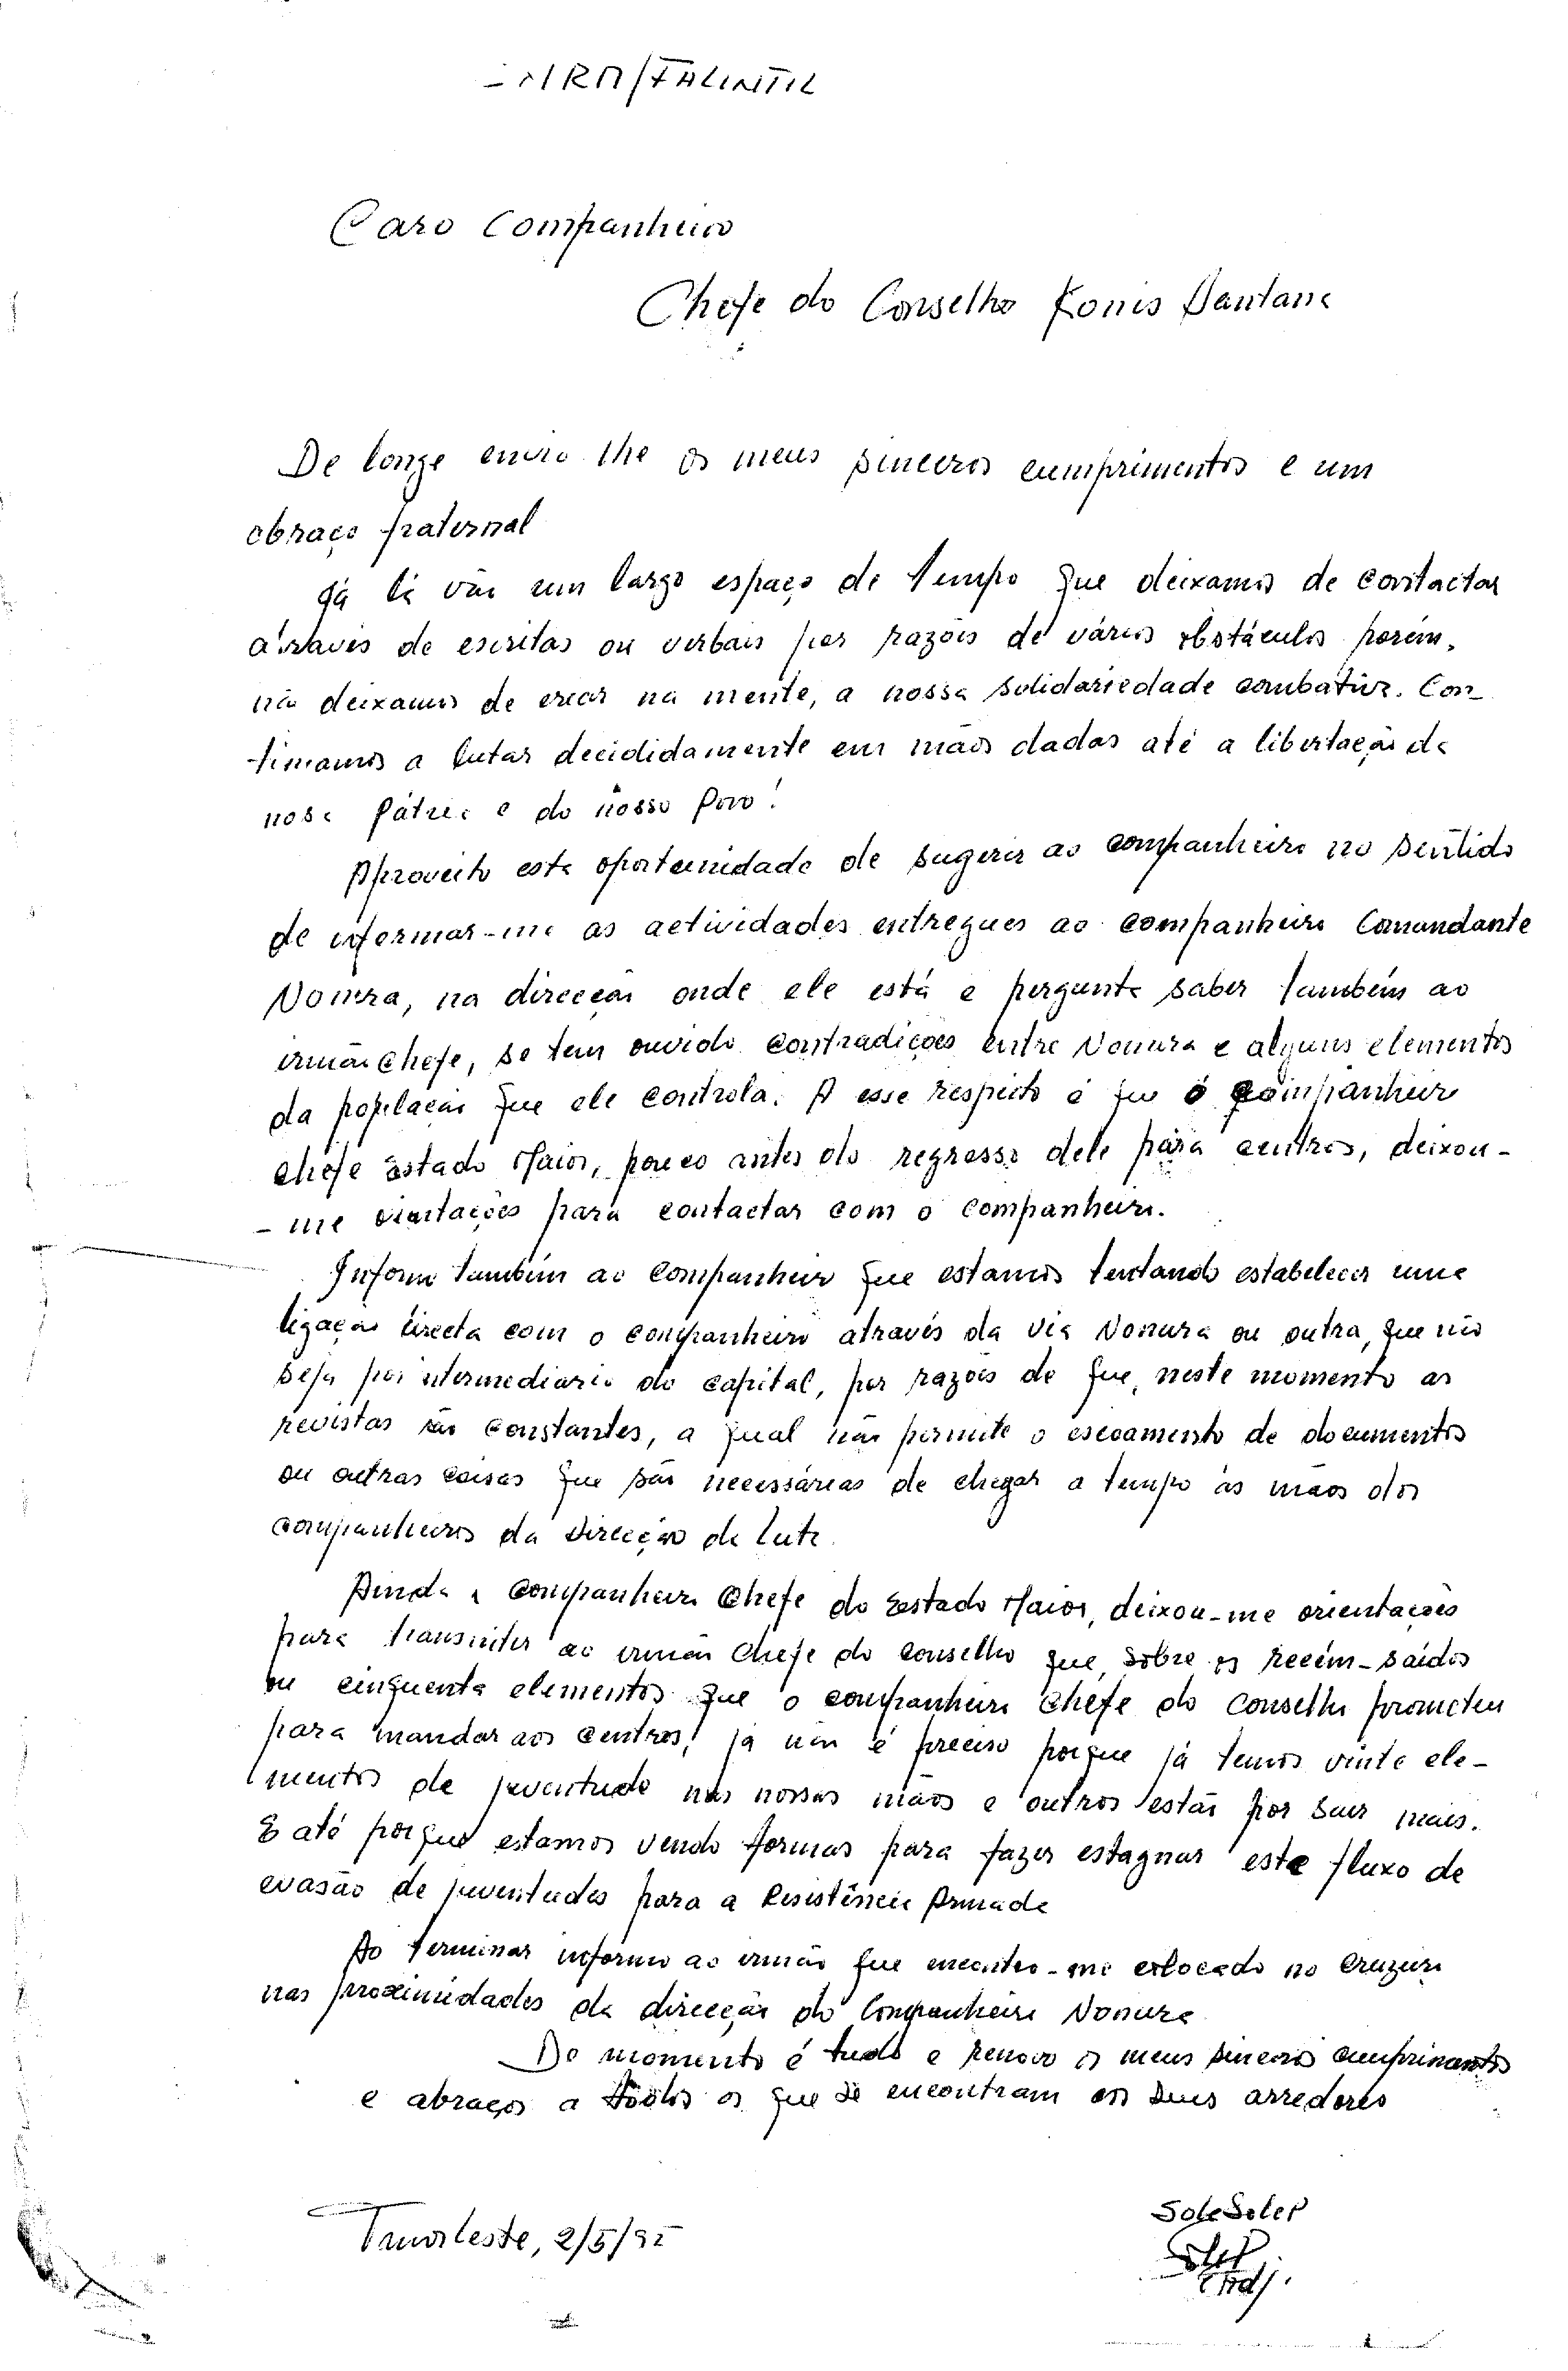 CNRM/FALINTIL
Caro Companheiro
Chefe do Conselho Konis Santana
De longe envio lhe os meus sinceros cumprimentos e um
abraço fraternal
Já lá vão um largo espaço de tempo que deixamos de contactar
através de escritas ou verbais por razões de vários obstáculos porém,
não deixamos de criar na mente, a nossa solidariedade combativa. Con-
tinuamos a lutar decididamente em mãos dadas até a libertação da
nossa Pátria e do nosso Povo!
Aproveito esta oportunidade de sugerir ao companheiro no sentido
de informar-me as actividades entregues ao companheiro Comandante
Nomura, na direcção onde ele está e pergunto saber também ao
irmão Chefe, se tem ouvido contradições entre Nomura e alguns elementos
da população que ele controla. A esse respeito é que o companheiro
Chefe Estado Maior, pouco antes do regresso dele para centros, deixou-
-me orientações para contactar com o companheiro.
Informo também ao companheiro que estamos tentando estabelecer uma
ligação directa com o companheiro através da via Nomura ou outra, que não
seja por intermediário do capital, por razões de que, neste momento as
revistas são constantes, a qual não permite o escoamento de documentos
ou outras coisas que são necessárias de chegar a tempo às mãos dos
companheiros da Direcção da luta.
Ainda o companheiro Chefe do Estado Maior, deixou-me orientações
para transmitir ao irmão Chefe do Conselho que, sobre os recém-saídos
ou cinquenta elementos que o companheiro Chefe do Conselho prometeu
para mandar aos centros, já não é preciso porque já temos vinte ele-
mentos de juventude nas nossas mãos e outros estão por sair mais.
E até porque estamos vendo formas para fazer estagnar este fluxo de
evasão de juventudes para a Resistência Armada
Ao terminar informo ao irmão que encontro-me colocado no Cruzeiro
nas proximidades da direcção do Companheiro Nomura
De momento é tudo e renovo os meus sinceros cumprimentos
e abraços a todos os que se encontram aos seus arredores
Timorleste, 2/5/95
Sole Soler